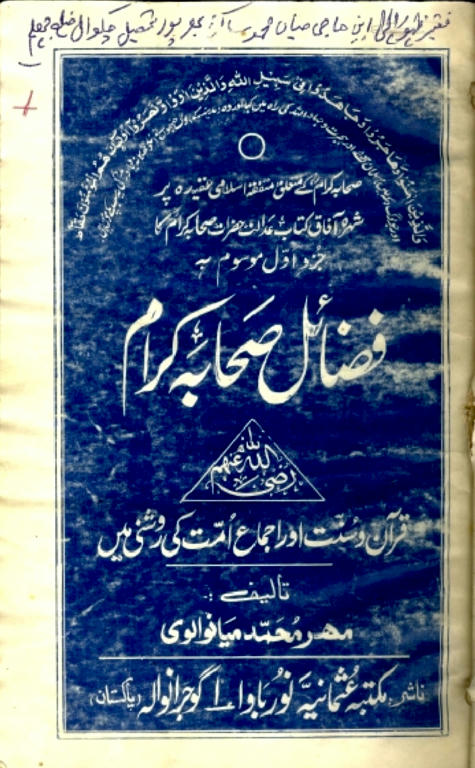 فقیر ابن حاجی میاں محمد ساکن پور تحصیل چکوال ضلع جہلم
وَالَّذِينَ آمَنُوا وَهَاجَرُوا وَجَاهَدُوا فِي سَبِيلِ اللَّهِ وَالَّذِينَ آوَوا وَّنَصَرُوا أُولَٰئِكَ هُمُ الْمُؤْمِنُونَ حَقًّا
صحابہ کرامؓ کے متعلق متفقہ اسلامی عقیدہ پر
شہرہ آفاق کتاب عدالت حضرات صحابہ کرامؓ کا
جزو اوّل موسوم بہ
فضائل صحابہ کرام
رضی اللہ عنہم
قرآن و سنّت اور اجماع اُمّت کی روشنی میں
تالیف :
مہر محمد میانوالوی
ناشر: مکتبہ عثمانیہ نور باوا گوجرانوالہ (پاکستان)